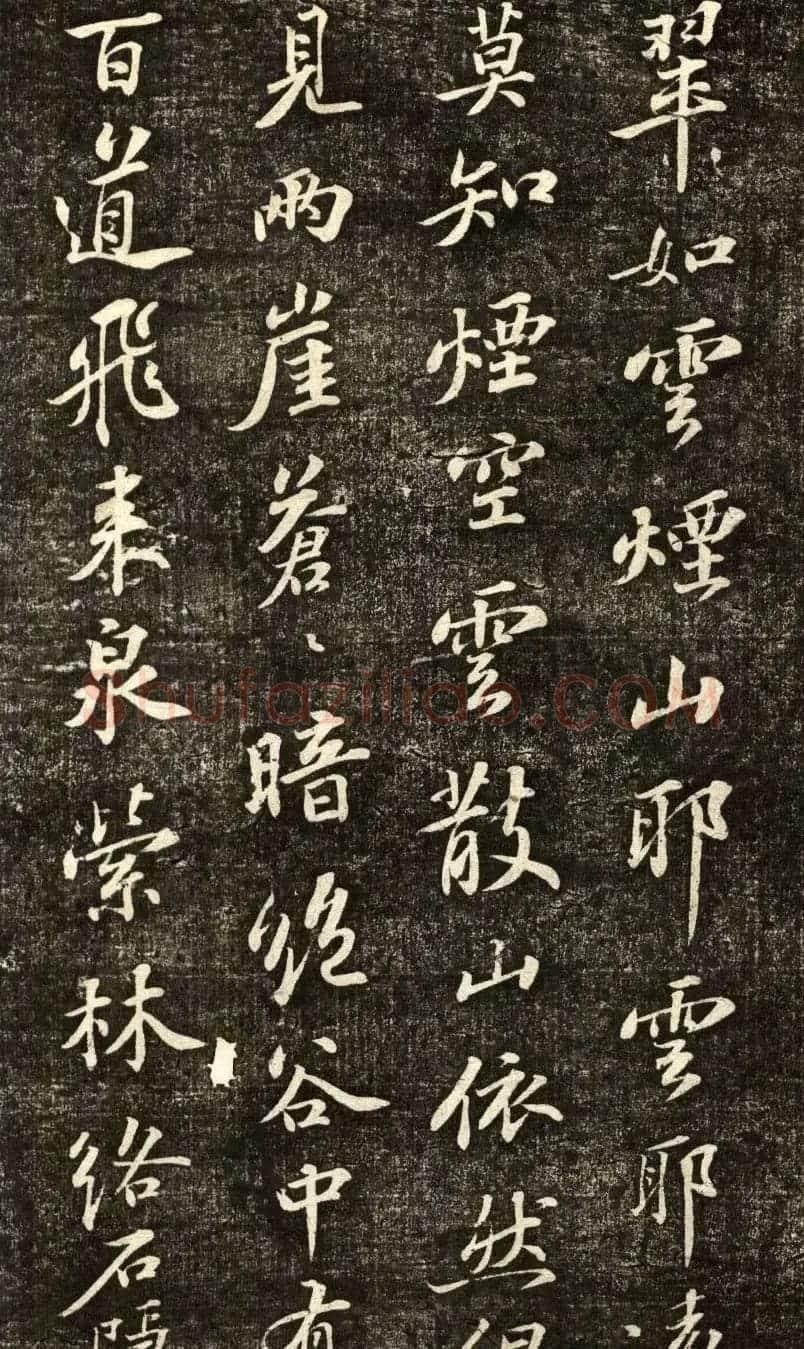 翠如雲煙山耶雲耶遠
莫知煙空雲散山依然但
見兩崖蒼〻暗絕谷中有
百道飛来泉縈林絡石隱
Shufaziliao.COM